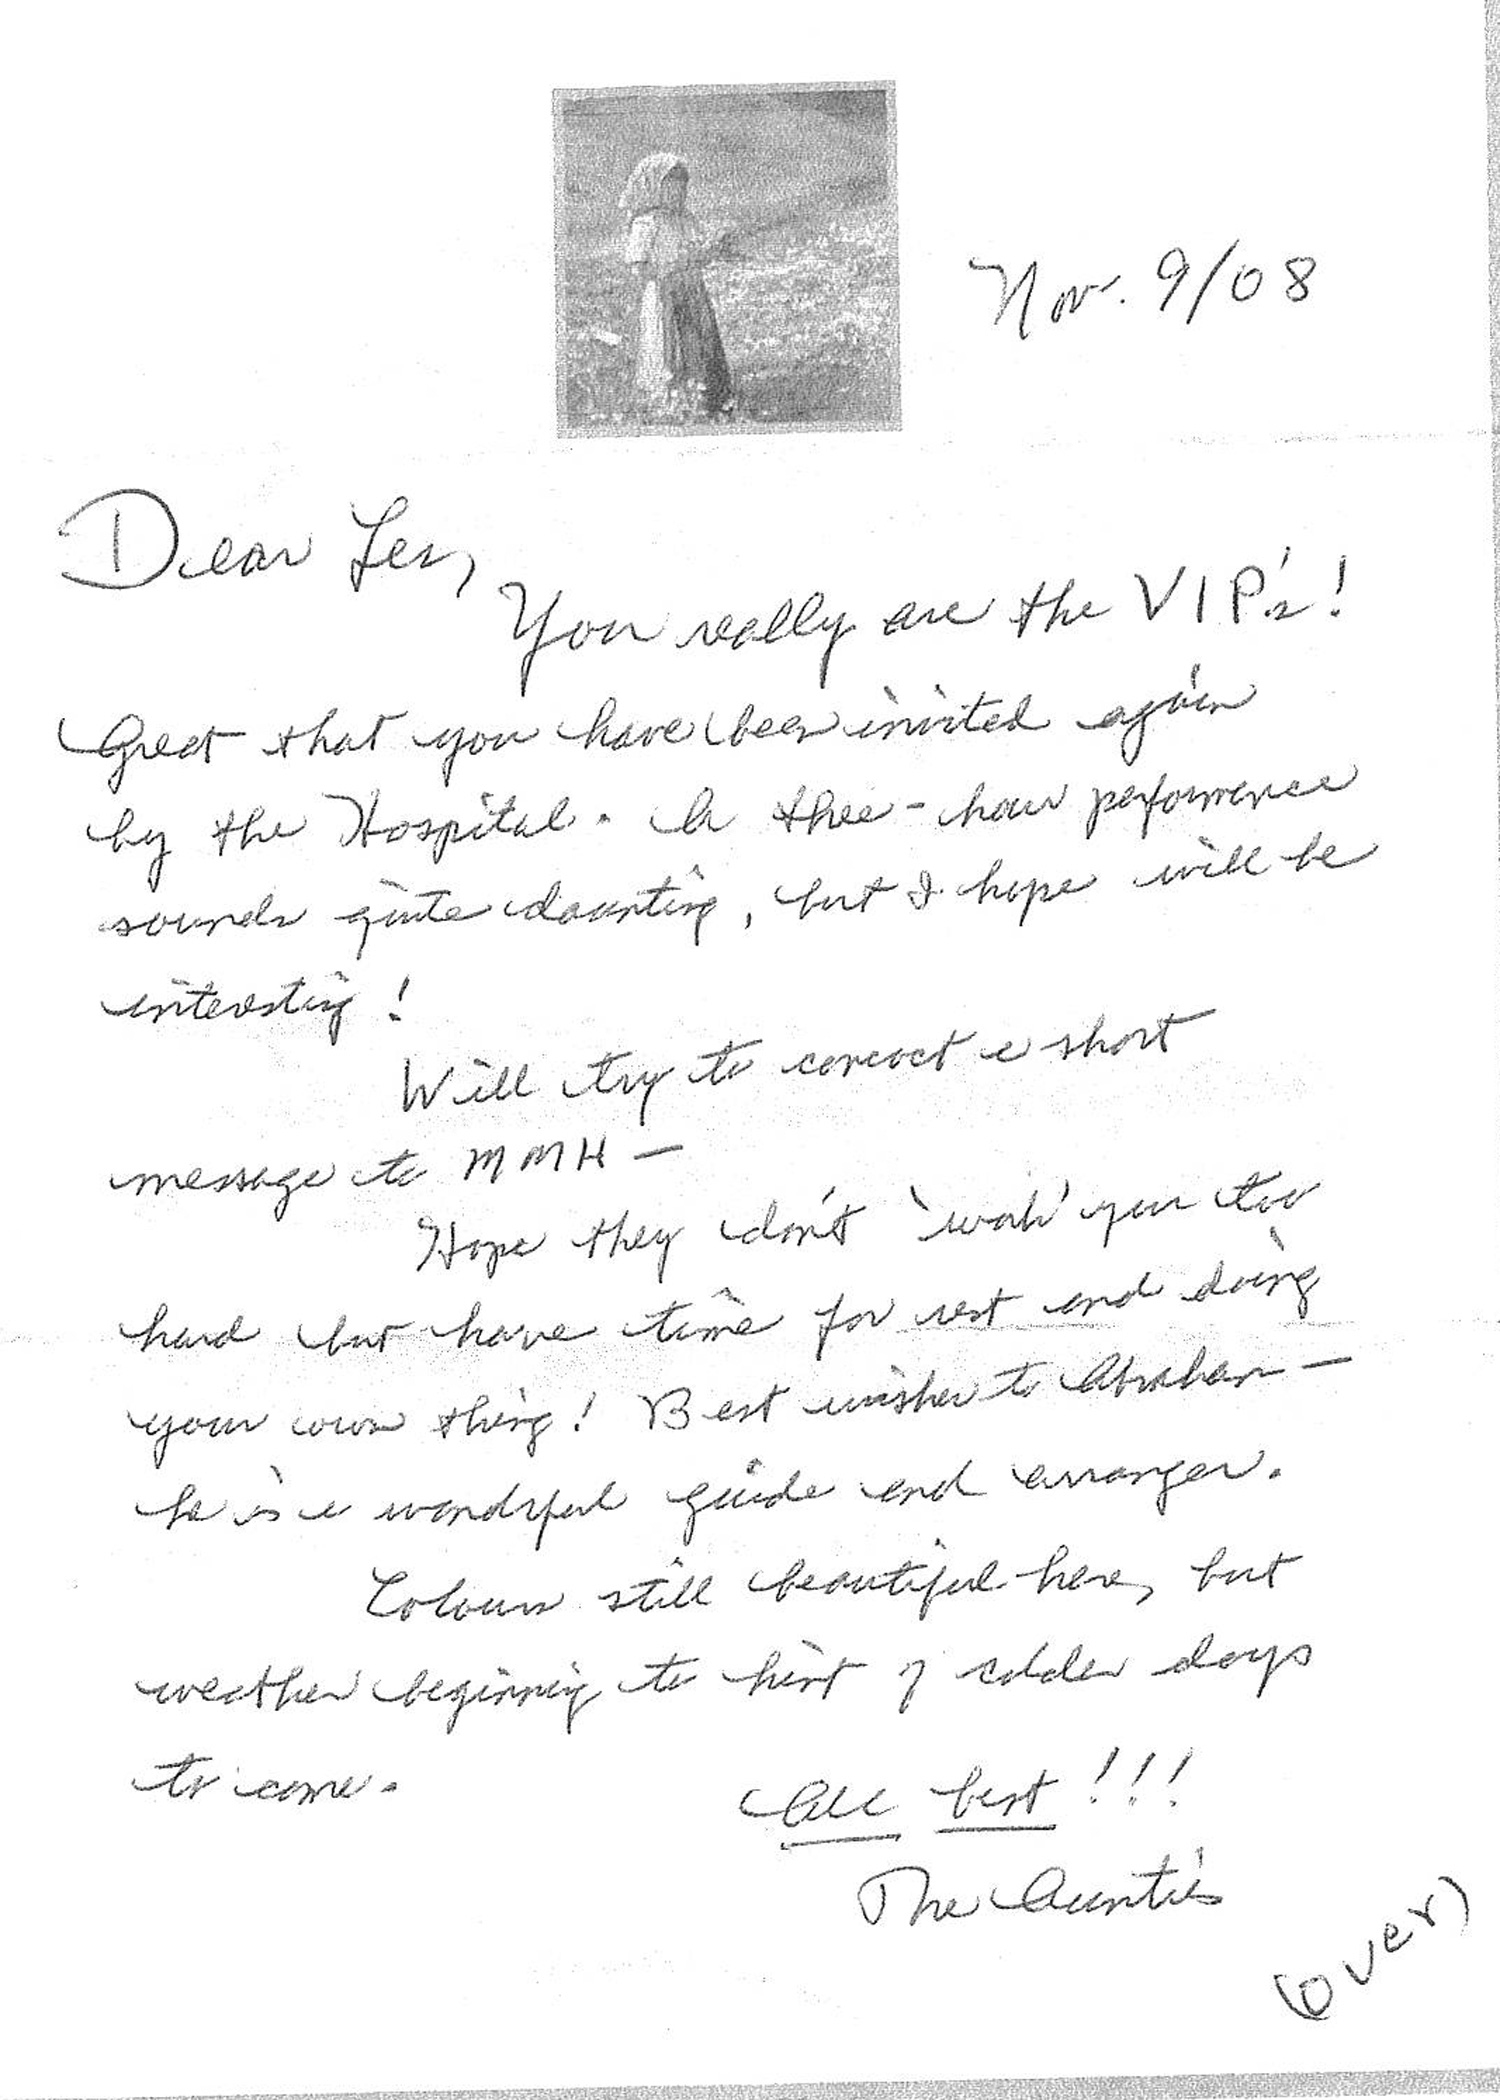 Nov. 9/08
Dear Les,
You really are the VIP's!
Great that you have been invited again
by the Hospital. A thee-hour performance
sounds quite daunting, but I hope will be
interesting!
Will try to concoct a short
message to MMH —
Hope they don't 'work' you too
hard but have time for rest and doing
your own thing! Best wishes to Abraham —
he is a wondrful guide and arranger.
Colours still beautiful here, but
weather beginning to hint of colder days
to come.
All best!!!
The Aunties
(over)